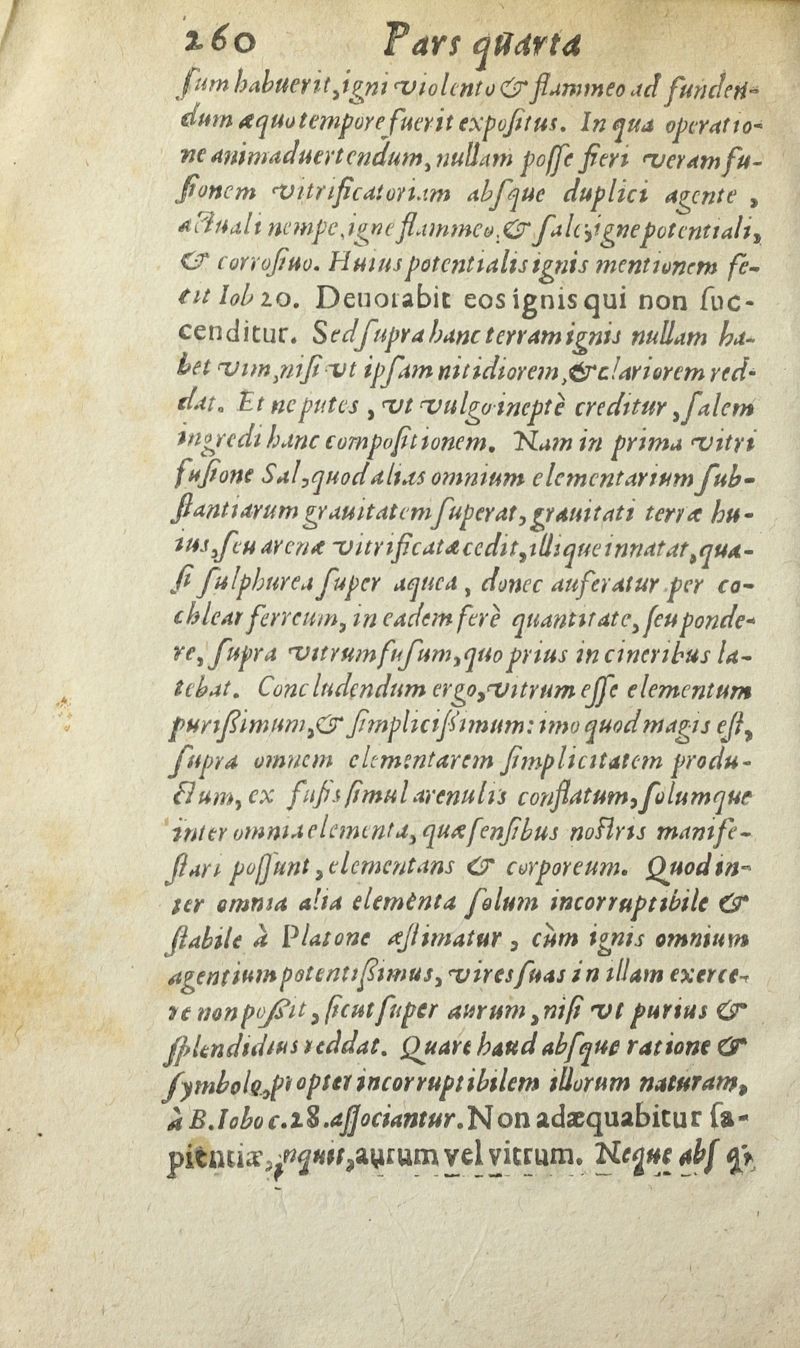 260 Pars quarta
ſum habuerit, igni violento & flammeo ad funden-
dum æquo tempore fuerit expoſitus. In qua operatio-
ne animaduertendum, nullam poſſe fieri veram fu-
ſionem vitrificatoriam abſque duplici agente ,
actuali nempe, igne flammeo, & ſale, igne potentiali,
& corroſiuo. Huius potentialis ignis mentionem fe-
cit Iob 20. Deuorabit eos ignis qui non ſuc-
cenditur. Sed ſupra hanc terram ignis nullam ha-
bet vim, niſi vt ipſam nitidiorem, & clariorem red-
dat. Et ne putes , vt vulgo ineptè creditur , ſalem
ingredi hanc compoſitionem. Nam in prima vitri
fuſione Sal, quod aliàs omnium elementarium ſub-
ſtantiarum grauitatem ſuperat, grauitati terræ hu-
ius, ſeu arenæ vitrificatæ cedit, illique innatat, qua-
ſi ſulphurea ſuper aquea , donec auferatur per co-
chlear ferreum, in eadem ferè quantitate, ſeu ponde-
re, ſupra vitrum fuſum, quo prius in cineribus la-
tebat. Concludendum ergo, vitrum eſſe elementum
puriſsimum, & ſimpliciſsimum: imo quod magis eſt,
ſupra omnem elementarem ſimplicitatem produ-
ctum, ex fuſis ſimul arenulis conflatum, ſolumque
inter omnia elementa, quæ ſenſibus noſtris manife-
ſtari poſſunt , elementans & corporeum. Quod in-
ter omnia alia elementa ſolum incorruptibile &
ſtabile à Platone æſtimatur , cùm ignis omnium
agentium potentiſsimus, vires ſuas in illam exerce-
re non poſsit , ſicut ſuper aurum , niſi vt purius &
ſplendidius reddat. Quare haud abſque ratione &
ſymbolo, propter incorruptibilem illorum naturam,
à B. Iobo c. 28. aſſociantur. Non adæquabitur ſa-
pientiæ, inquit, aurum vel vitrum. Neque abſ q;